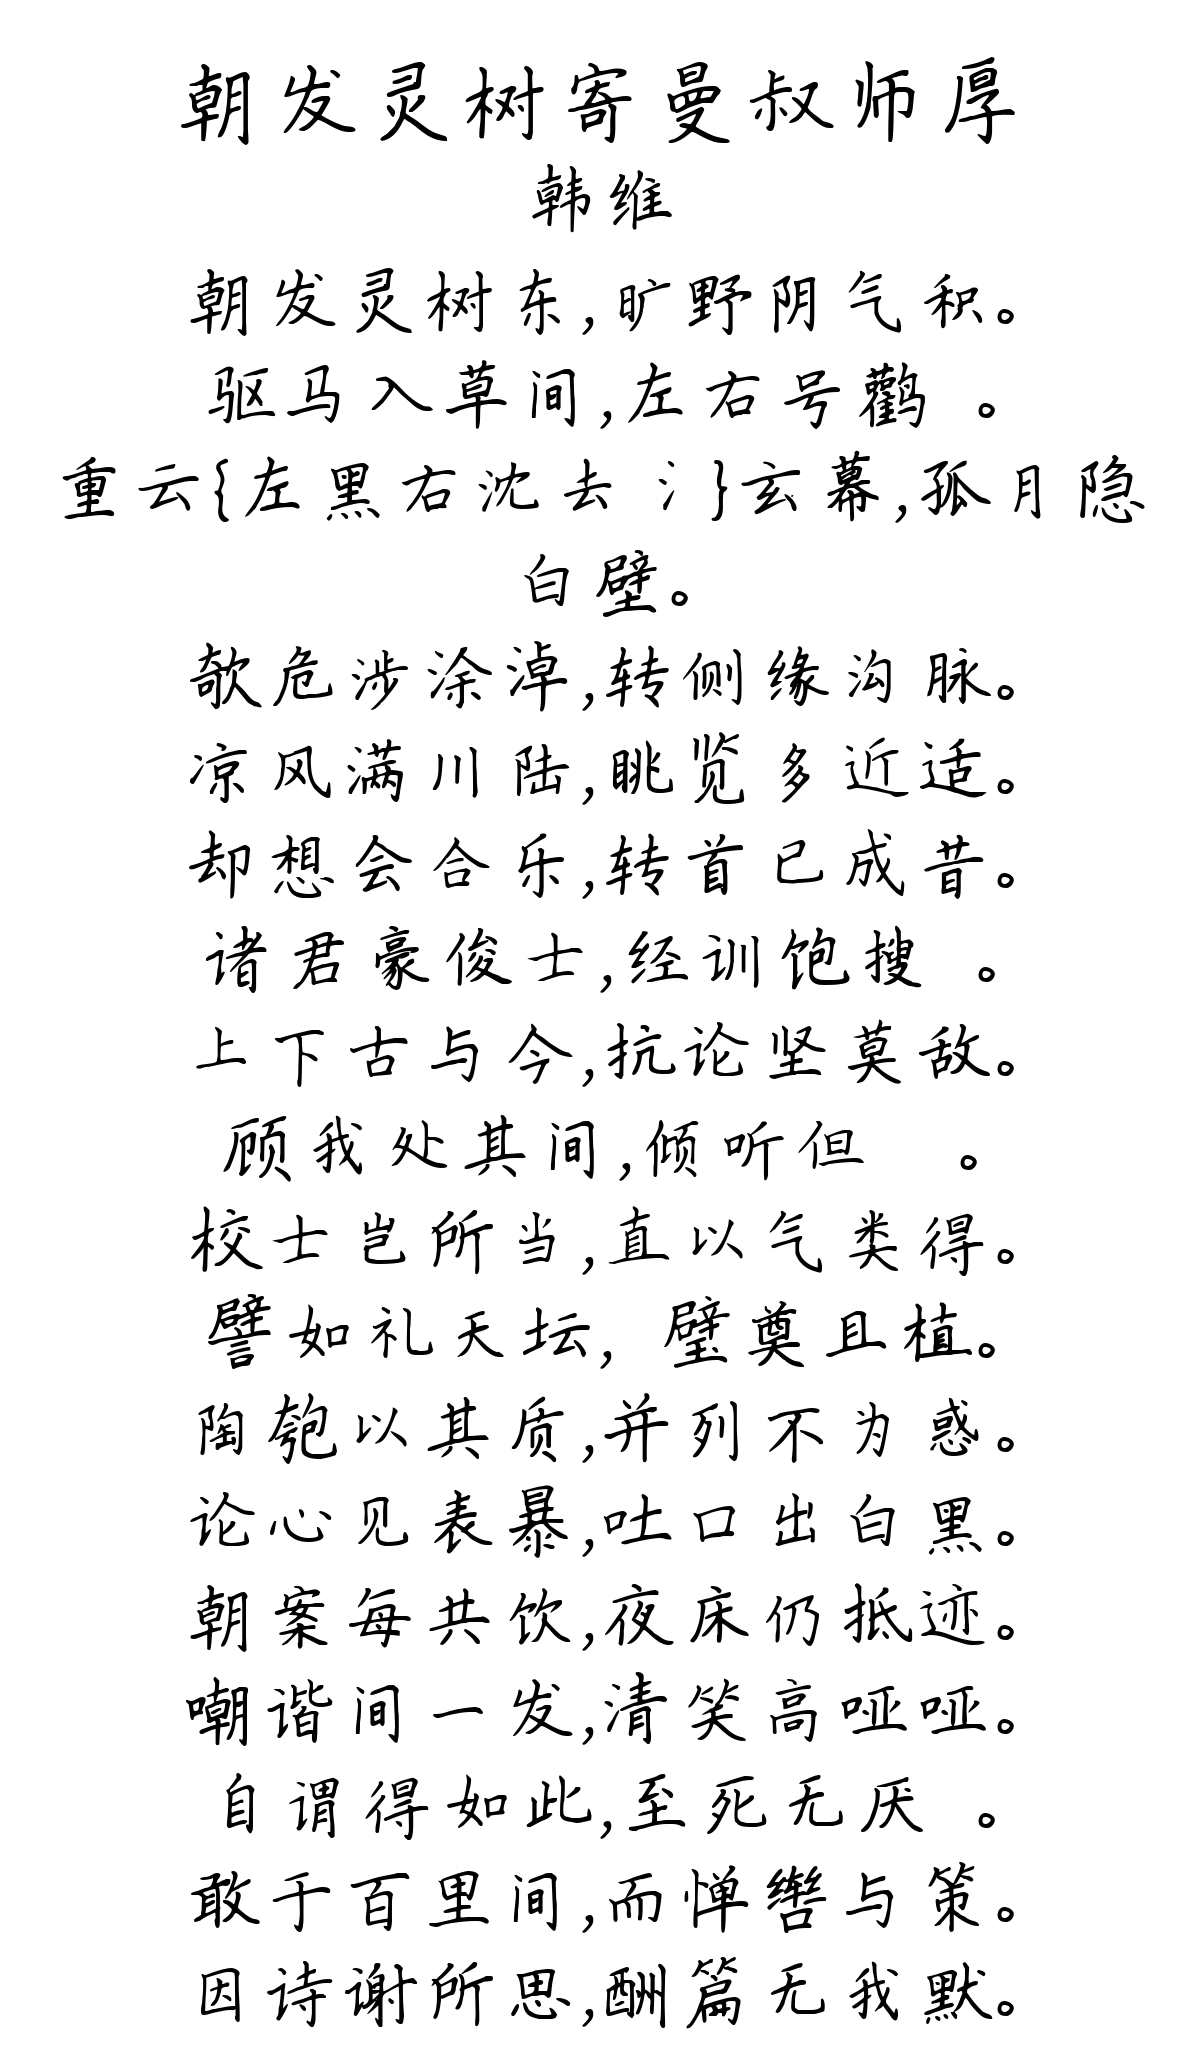 朝发灵树寄曼叔师厚
韩维
朝发灵树东,旷野阴气积。
驱马入草间,左右号鹳 。
重云{左黑右沈去氵}玄幕,孤月隐
白壁。
欹危涉涂淖,转侧缘沟脉。
凉风满川陆,眺览多近适。
却想会合乐,转首已成昔。
诸君豪俊士,经训饱搜 。
上下古与今,抗论坚莫敌。
顾我处其间,倾听但 。
校士岂所当,直以气类得。
譬如礼天坛, 璧奠且植。
陶匏以其质,并列不为惑。
论心见表暴,吐口出白黑。
朝案每共饮,夜床仍抵迹。
嘲谐间一发,清笑高哑哑。
自谓得如此,至死无厌 。
敢于百里间,而惮辔与策。
因诗谢所思,酬篇无我默。